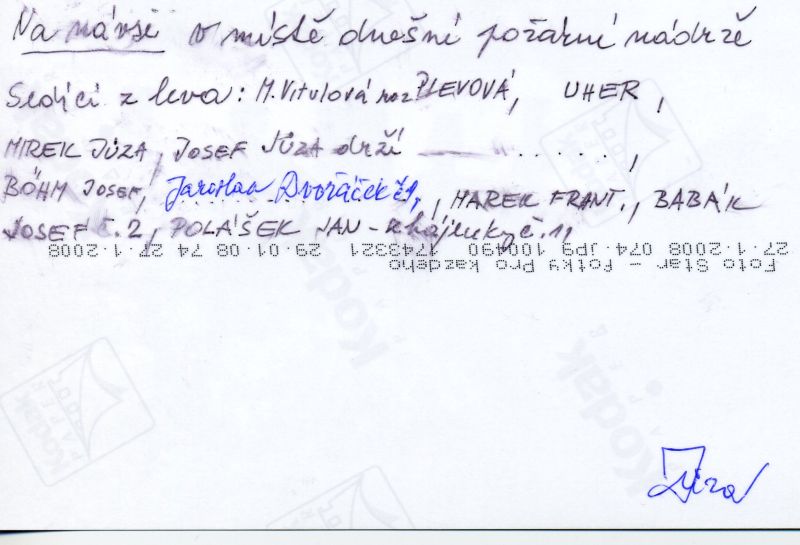 Na návsi v místě dnešní požární nádrže
Sedící z leva: M. Vitulová roz PLEVOVÁ, UHER,
MIREK JŮZA, JOSEF JŮZA drží ——— ......,
BÖHM JOSEF, Jaroslav Dvořáček č1, , MAREK FRANT., BABÁK
JOSEF č. 2, POLÁŠEK JAN - z hájenky č. 1,
27.1.2008 074.JPG 100490 1743321 29.01.08 74 27.1.2008
Foto Star - Fotky Pro kazdeho
Kodak
Kodak
Kodak
Jůza